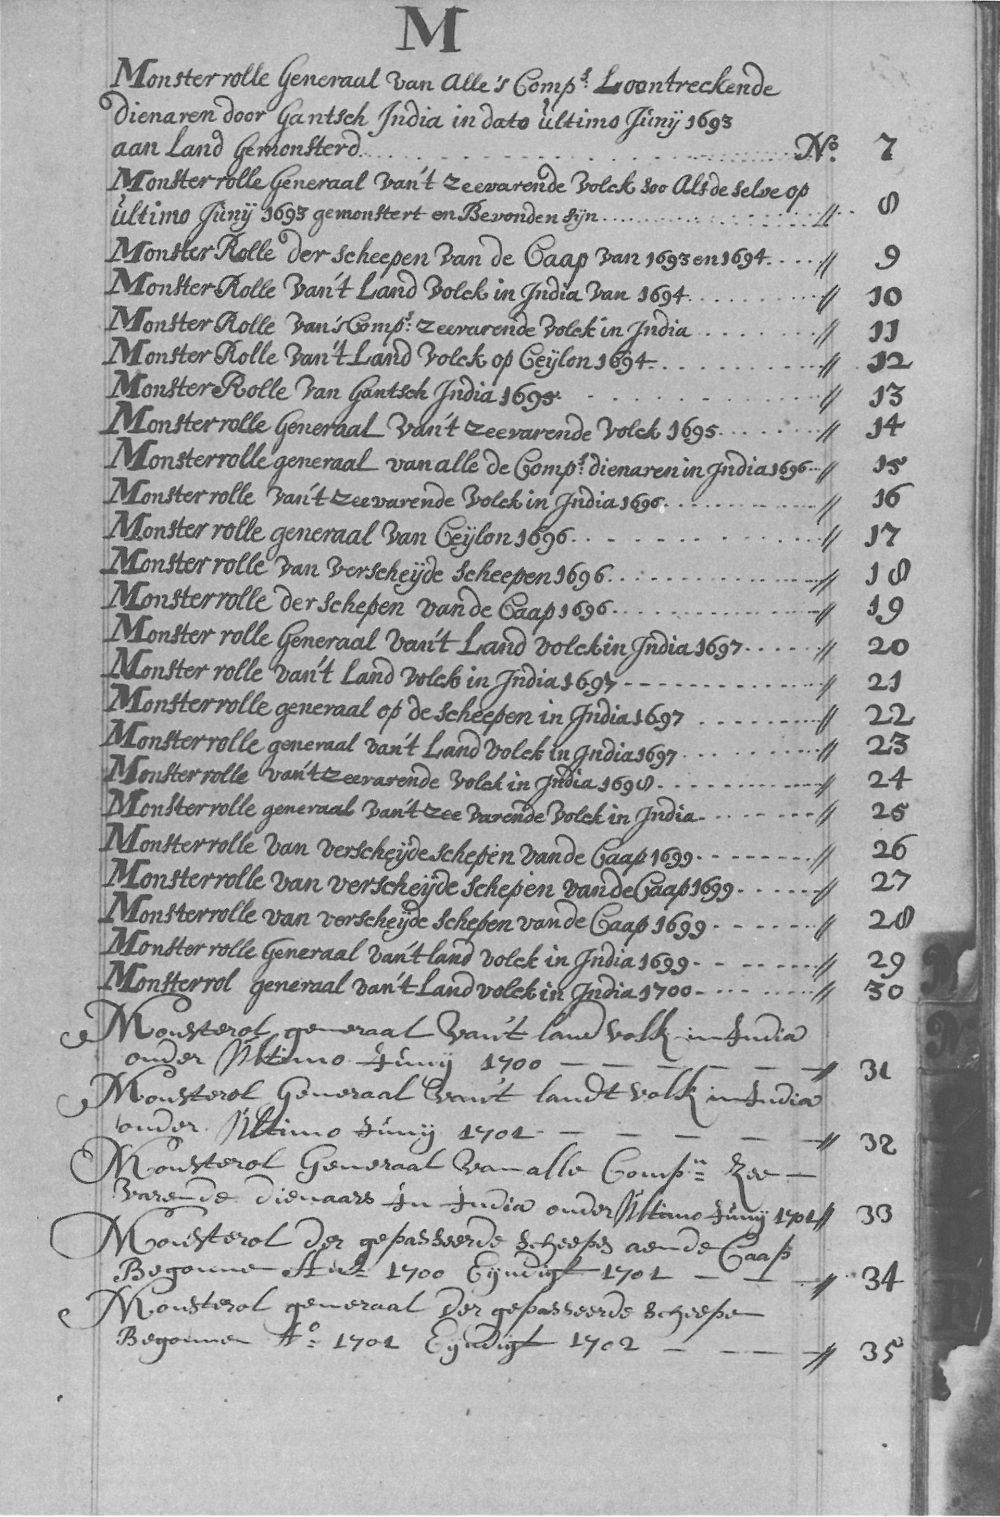 M
Monster rolle Generaal van Alle's Comps. Loontreckende
dienaren door Gantsch India in dato ultimo Junij 1693
aan Land Gemonsterd No. 7
Monster rolle Generaal van't zeevarende volck soo Als de selve op
ultimo Junij 1693 gemonstert en Bevonden sijn " 8
Monster Rolle der scheepen van de Caap van 1693 en 1694 " 9
Monster Rolle van't Land volck in India van 1694 " 10
Monster Rolle van's Comps. zeevarende volck in India " 11
Monster Rolle van't Land volck op Ceijlon 1694 " 12
Monster Rolle van Gantsch India 1695 " 13
Monster rolle Generaal van't zeevarende volck 1695 " 14
Monsterrolle generaal van alle de Comps. dienaren in India 1696 " 15
Monster rolle van't zeevarende volck in India 1696 " 16
Monster rolle generaal van Ceijlon 1696 " 17
Monster rolle van verscheijde scheepen 1696 " 18
Monsterrolle der schepen van de Caap 1696 " 19
Monster rolle Generaal van't Land volck in India 1697 " 20
Monster rolle van't Land volck in India 1697 " 21
Monsterrolle generaal op de scheepen in India 1697 " 22
Monsterrolle generaal van't Land volck in India 1697 " 23
Monster rolle van't zeevarende volck in India 1698 " 24
Monsterrolle generaal van't zee varende volck in India " 25
Monsterrolle van verscheijde schepen van de Caap 1699 " 26
Monsterrolle van verscheijde schepen van de Caap 1699 " 27
Monsterrolle van verscheijde schepen van de Caap 1699 " 28
Monster rolle Generaal van't land volck in India 1699 " 29
Monsterrol generaal van't Land volck in India 1700 " 30
Monsterol generaal van't land volk in India
onder Ultimo Junij 1700 " 31
Monsterol Generaal van't landt volk in India
onder Ultimo Junij 1701 " 32
Monsterol Generaal van alle Compn. Zee
varende dienaars in India onder Ultimo Junij 1701 " 33
Monsterol der gepasseerde scheepen aen de Caap
Begonnen Ao. 1700 Eijndigt 1701 " 34
Monsterol generaal der gepasseerde scheepen
Begonnen Ao. 1701 Eijndigt 1702 " 35